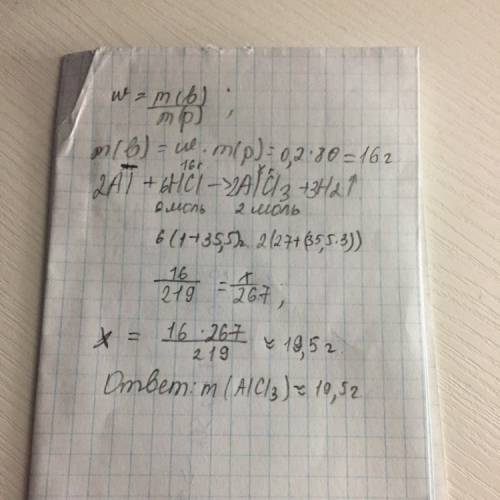 w = m(в)/m(р) ;
m(в) = w · m(р) = 0,2·80 = 16 г
16г x г
2Al + 6HCl → 2AlCl₃ + 3H₂↑
6 моль 2 моль
6(1+35,5) 2(27+(35,5·3))
16/219 = x/267 ;
x = 16·267/219 ≈ 19,5 г.
Ответ: m(AlCl₃) ≈ 19,5 г